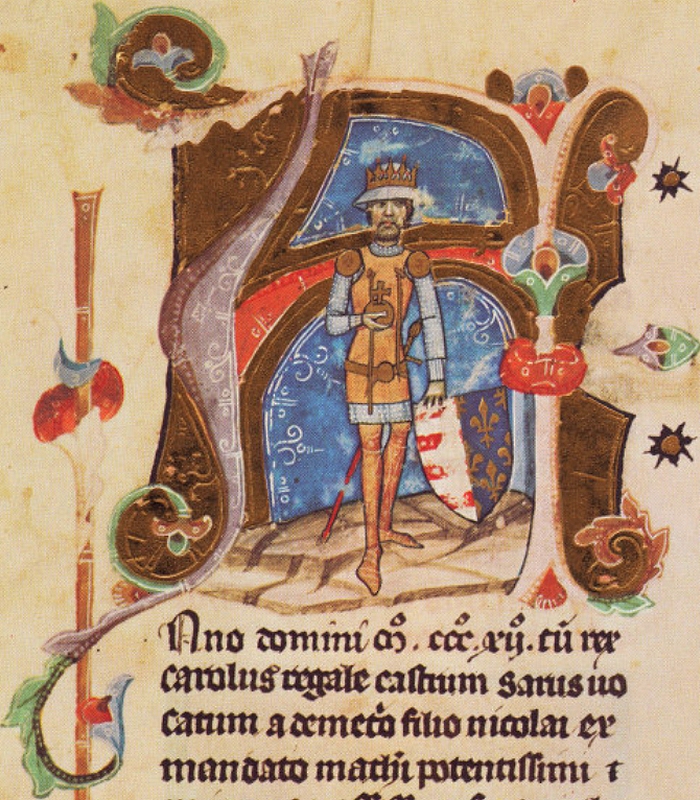 Anno domini M̊. cccͦ. xij. cū rex
carolus regale castrum sarus uo
catum a demetͦo filio nicolai ex
mandato mathi potentissimi ⁊